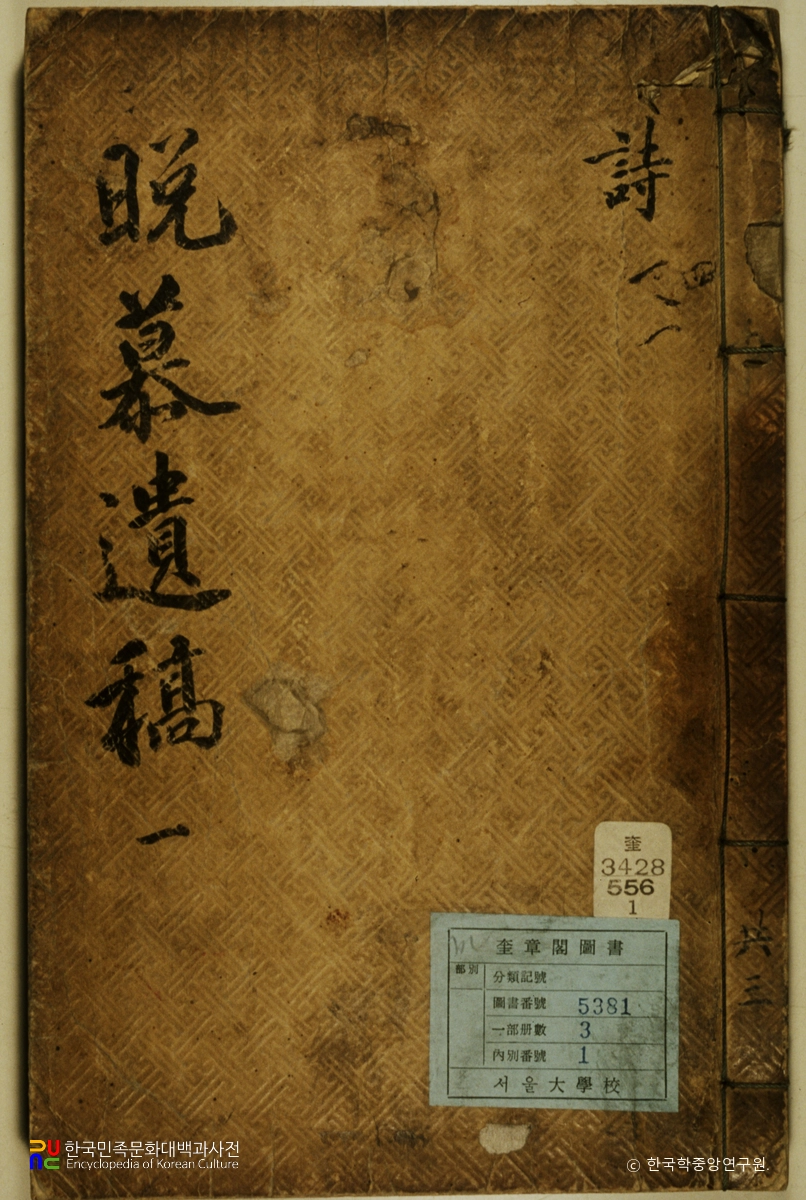 晩慕遺稿 一
詩
共三
奎
3428
556
1
奎章閣圖書
部別
分類記號
圖書番號 5381
一部册數 3
內別番號 1
서울大學校
한국민족문화대백과사전
Encyclopedia of Korean Culture
© 한국학중앙연구원